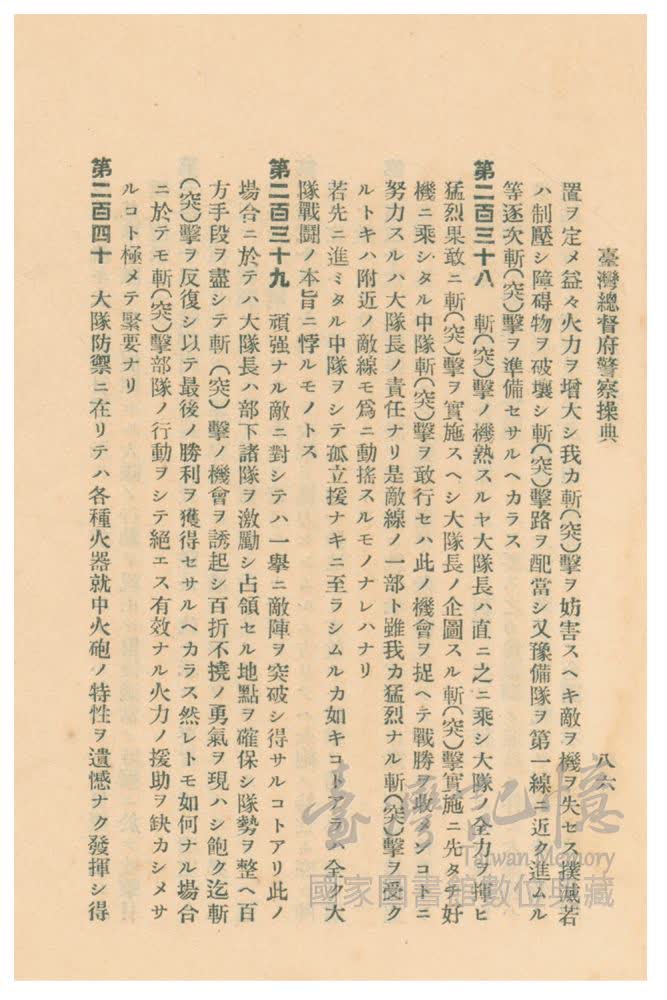 臺灣總督府警察操典
八六
置ヲ定メ益々火力ヲ增大シ我カ斬(突)擊ヲ妨害スヘキ敵ヲ機ヲ失セス撲滅若
ハ制壓シ障碍物ヲ破壞シ斬(突)擊路ヲ配當シ又豫備隊ヲ第一線ニ近ク進ムル
等逐次斬(突)擊ヲ準備セサルヘカラス
第二百三十八 斬(突)擊ノ機熟スルヤ大隊長ハ直ニ之ニ乘シ大隊ノ全力ヲ揮ヒ
猛烈果敢ニ斬(突)擊ヲ實施スヘシ大隊長ノ企圖スル斬(突)擊實施ニ先タチ好
機ニ乘シタル中隊斬(突)擊ヲ敢行セハ此ノ機會ヲ捉ヘテ戰勝ヲ收メンコトニ
努力スルハ大隊長ノ責任ナリ是敵線ノ一部ト雖我カ猛烈ナル斬(突)擊ヲ受ク
ルトキハ附近ノ敵線モ爲ニ動搖スルモノナレハナリ
若先ニ進ミタル中隊ヲシテ孤立援ナキニ至ラシムルカ如キコトアラハ全ク大
隊戰鬪ノ本旨ニ悖ルモノトス
第二百三十九 頑强ナル敵ニ對シテハ一擧ニ敵陣ヲ突破シ得サルコトアリ此ノ
場合ニ於テハ大隊長ハ部下諸隊ヲ激勵シ占領セル地點ヲ確保シ隊勢ヲ整ヘ百
方手段ヲ盡シテ斬(突)擊ノ機會ヲ誘起シ百折不撓ノ勇氣ヲ現ハシ飽ク迄斬
(突)擊ヲ反復シ以テ最後ノ勝利ヲ獲得セサルヘカラス然レトモ如何ナル場合
ニ於テモ斬(突)擊部隊ノ行動ヲシテ絕エス有效ナル火力ノ援助ヲ缺カシメサ
ルコト極メテ緊要ナリ
第二百四十 大隊防禦ニ在リテハ各種火器就中火砲ノ特性ヲ遺憾ナク發揮シ得
臺灣記憶
Taiwan Memory
國家圖書館數位典藏